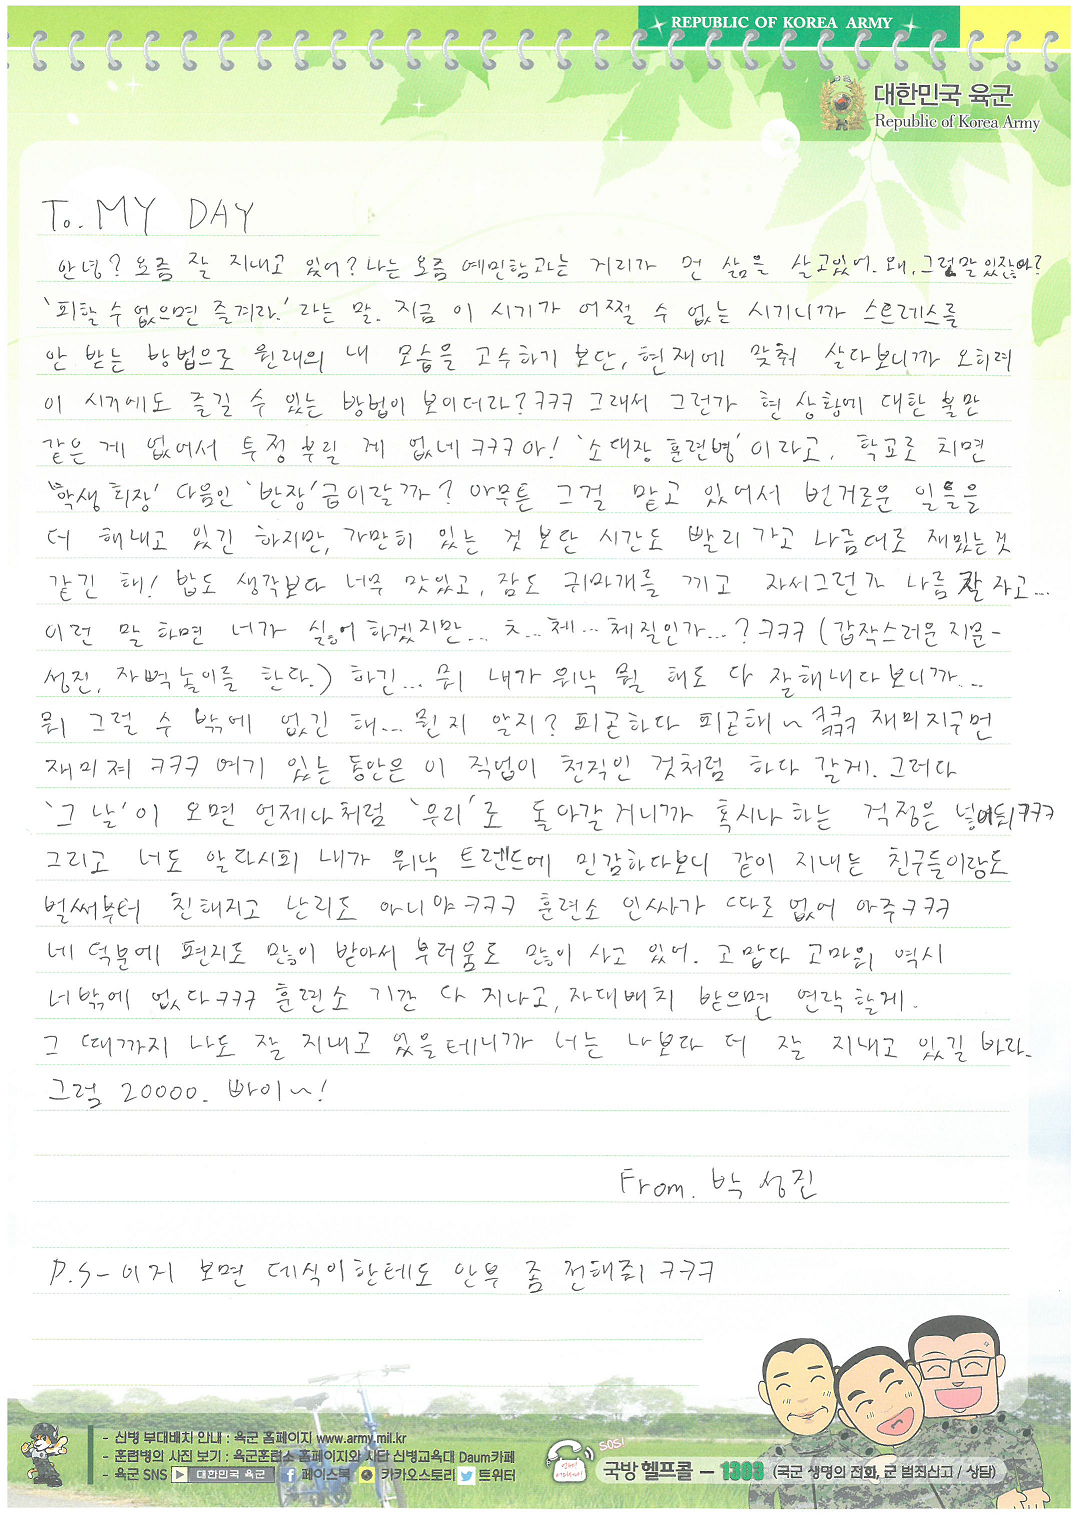 REPUBLIC OF KOREA ARMY
대한민국 육군
Republic of Korea Army
To. MY DAY
안녕? 요즘 잘 지내고 있어? 나는 요즘 예민함과는 거리가 먼 삶을 살고있어. 왜, 그런말 있잖아?
'피할 수 없으면 즐겨라.' 라는 말. 지금 이 시기가 어쩔 수 없는 시기니까 스트레스를
안 받는 방법으로 원래의 내 모습을 고수하기 보단, 현재에 맞춰 살다보니까 오히려
이 시기에도 즐길 수 있는 방법이 보이더라? ㅋㅋㅋ 그래서 그런가 현 상황에 대한 불만
같은 게 없어서 투정 부릴 게 없네 ㅋㅋㅋ 아! '소대장 훈련병' 이라고, 학교로 치면
'학생 회장' 다음인 '반장' 급이랄까? 아무튼 그걸 맡고 있어서 번거로운 일들을
더 해내고 있긴 하지만, 가만히 있는 것 보단 시간도 빨리 가고 나름대로 재밌는것
같긴 해! 밥도 생각보다 너무 맛있고, 잠도 귀마개를 끼고 자서그런가 나름 잘 자고...
이런 말 하면 네가 싫어 하겠지만... ㅊ...체...체질인가...? ㅋㅋㅋ (갑작스러운 지문-
성진, 자뻑놀이를 한다.) 하긴... 뭐 내가 워낙 뭘 해도 다 잘해내다보니까...
뭐 그럴 수 밖에 없긴 해... 뭔지 알지? 피곤하다 피곤해~ ㅋㅋㅋㅋㅋㅋ 재미지구먼
재미져 ㅋㅋㅋ 여기 있는 동안은 이 직업이 천직인 것처럼 하다 갈게. 그러다
'그 날'이 오면 언제나처럼 '우리'로 돌아갈 거니까 혹시나 하는 걱정은 넣어둬 ㅋㅋㅋ
그리고 너도 알다시피 내가 워낙 트렌드에 민감하다보니 같이 지내는 친구들이랑도
벌써부터 친해지고 난리도 아니야 ㅋㅋㅋ 훈련소 인싸가 따로 없어 아주 ㅋㅋㅋ
네 덕분에 편지도 많이 받아서 부러움도 많이 사고 있어. 고맙다 고마워 역시
너밖에 없다 ㅋㅋㅋ 훈련소 기간 다 지나고, 자대배치 받으면 연락 할게.
그 때까지 나도 잘 지내고 있을테니까 너는 나보다 더 잘 지내고 있길 바라.
그럼 20000. 빠이~!
From. 박성진
P.S- 이거 보면 데식이한테도 안부 좀 전해줘 ㅋㅋㅋ
- 신병 부대배치 안내 : 육군 홈페이지 www.army.mil.kr
- 훈련병의 사진 보기 : 육군훈련소 홈페이지와 사단 신병교육대 Daum카페
- 육군 SNS 대한민국 육군 페이스북 카카오스토리 트위터
SOS!
국방헬프콜 - 1303 (국군 생명의 전화, 군 범죄신고 / 상담)